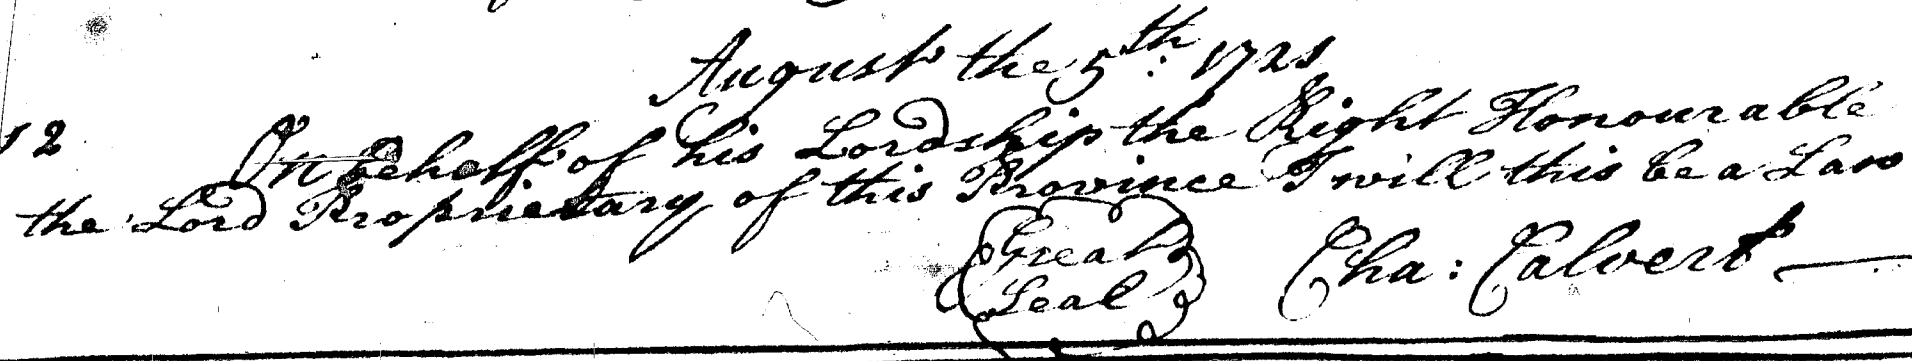 August the 5th: 1721
12
On behalf of his Lordship the Right Honourable
the Lord Proprietary of this Province I will this be a Law
Great
Seal
Cha: Calvert